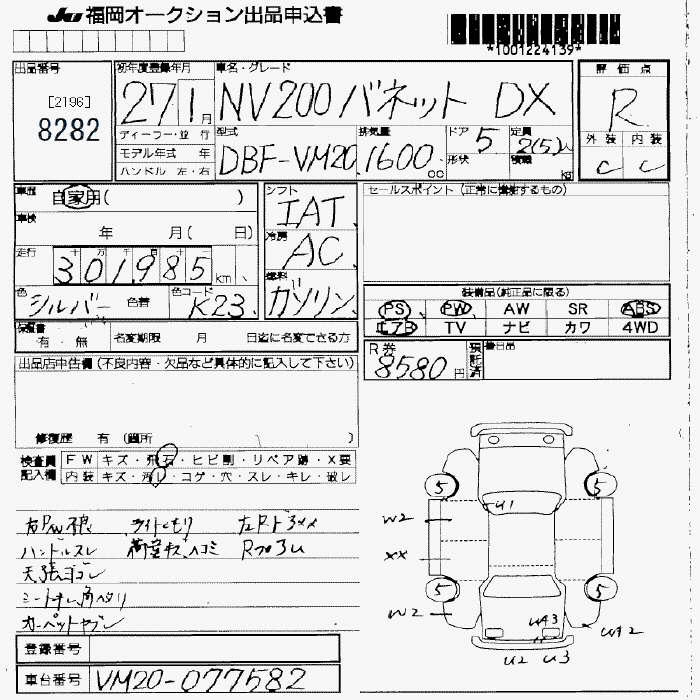 JU 福岡オークション出品申込書
*1001224139*
出品番号
[2196]
8282
初年度登録年月
27 1 月
車名・グレード
NV200 バネット DX
評価点
R
ディーラー・並行
モデル年式 年
ハンドル 左・右
型式
DBF-VM20
排気量
1600 cc
ドア
5
形状
定員
2(5)人
積載
kg
外装 内装
C C
車歴
自家用( )
車検
年 月( 日)
走行
十 万 千 百
301,985 km
色
シルバー 色替
色コード
K23
シフト
IAT
冷房
AC
燃料
ガソリン
セールスポイント (正常に機能するもの)
装備品(純正品に限る)
PS PW AW SR ABS
エアB TV ナビ カワ 4WD
保証書
有・無
名変期限 月 日迄に名変できる方
R券
8580 円
預託済
出品店申告欄 (不良内容・欠品など具体的に記入して下さい)
修復歴 有 (箇所 )
検査員
記入欄
FW キズ・飛石・ヒビ割・リペア跡・X要
内装 キズ・汚レ・コゲ・穴・スレ・キレ・破レ
ライトくもり
ハンドルスレ
天張ヨゴレ
カーペットヤブレ
5 5
U1
W2
XX
5 5
W2
U2 U3
登録番号
車台番号
VM20-077582